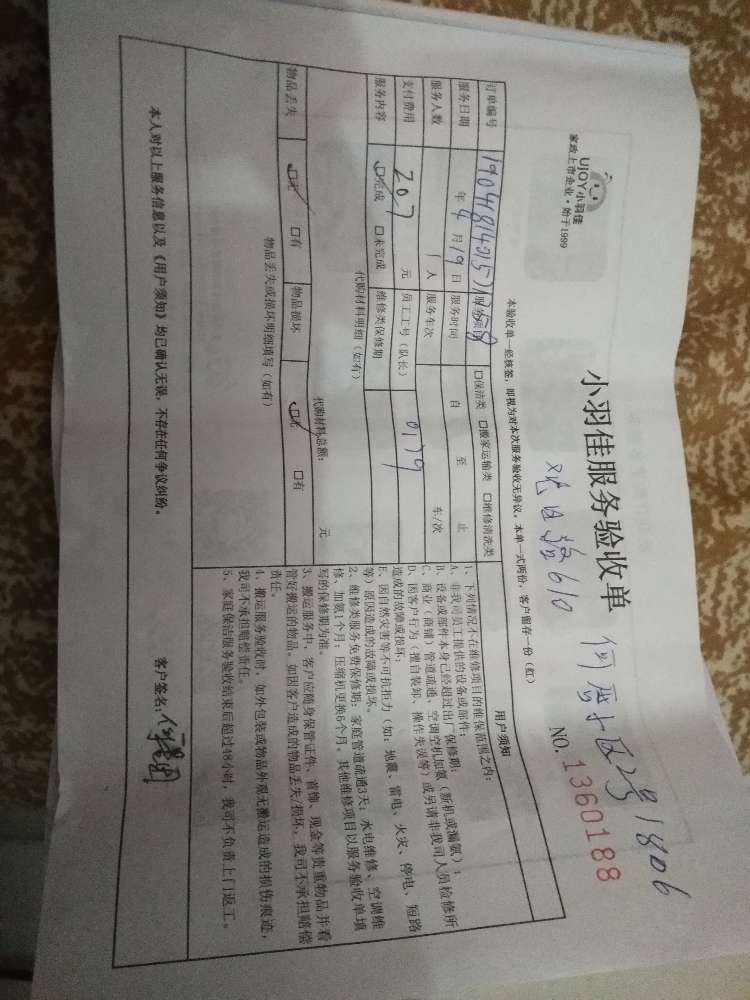 UJOY小羽佳
家政上市企业·始于1999
小羽佳服务验收单
610
2号1806
NO. 1360188
本验收单一经核签，即视为对本次服务验收无异议。本单一式两份，客户留存一份（红）
订单编号 服务项目 □保洁类 □搬家运输类 □维修清洗类
服务日期 年4月19日 服务时间 自 至 止
服务人数 1人 服务车次 车/次
支付费用 207 元 员工工号（队长） 0179
服务内容 ☑完成 □未完成 维修类保修期
代购材料明细（如有）
代购材料总额： 元
物品丢失 ☑无 □有 物品损坏 ☑无 □有
物品丢失或损坏明细填写（如有）
用户须知
1、下列情况不在维修项目的维保范围之内：
A、非我司员工提供的设备或部件；
B、设备或部件本身已经超过出厂保修期；
C、商业（商铺）管道疏通、空调空机加氨（新机或漏氨）；
D、因客户行为（擅自装卸、操作失误等）或另请非我司人员检修所
造成的故障或损坏；
E、因自然灾害等不可抗拒力（如：地震、雷电、火灾、停电、短路
等）原因造成的故障或损坏。
2、维修类服务免费保修期：家庭管道疏通3天；水电维修、空调维
修、加氨1个月；压缩机更换6个月。其他维修项目以服务验收单填
写的保修期为准。
3、搬运服务中，客户应随身保管证件、首饰、现金等贵重物品并看
管好搬运的物品。如因客户造成的物品丢失/损坏，我司不承担赔偿
责任。
4、搬运服务验收时，如外包装或物品外观无搬运造成的损伤痕迹，
我司不承担赔偿责任。
5、家庭保洁服务验收结束后超过48小时，我司不负责上门返工。
本人对以上服务信息以及《用户须知》均已确认无误，不存在任何争议纠纷。
客户签名：